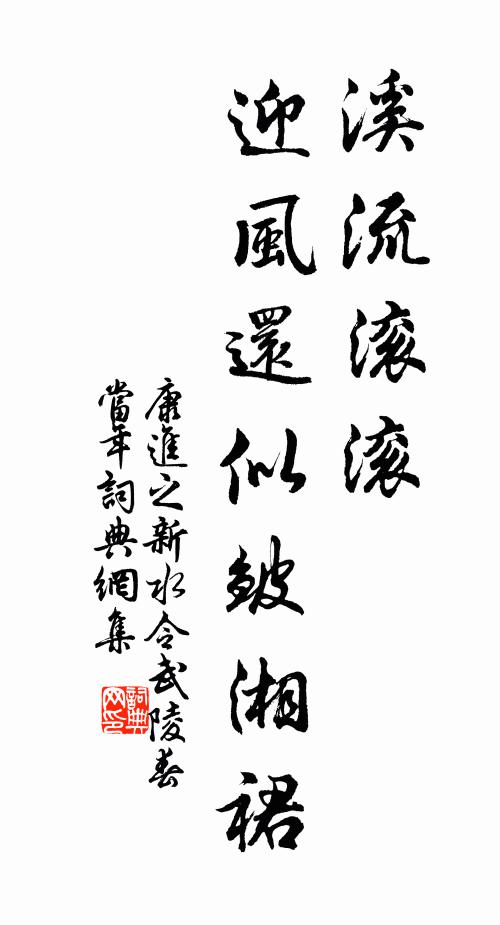 溪流滾滾
迎風還似皺湘裙
康進之新水令武陵春
當年詞典網集
詞典
网印